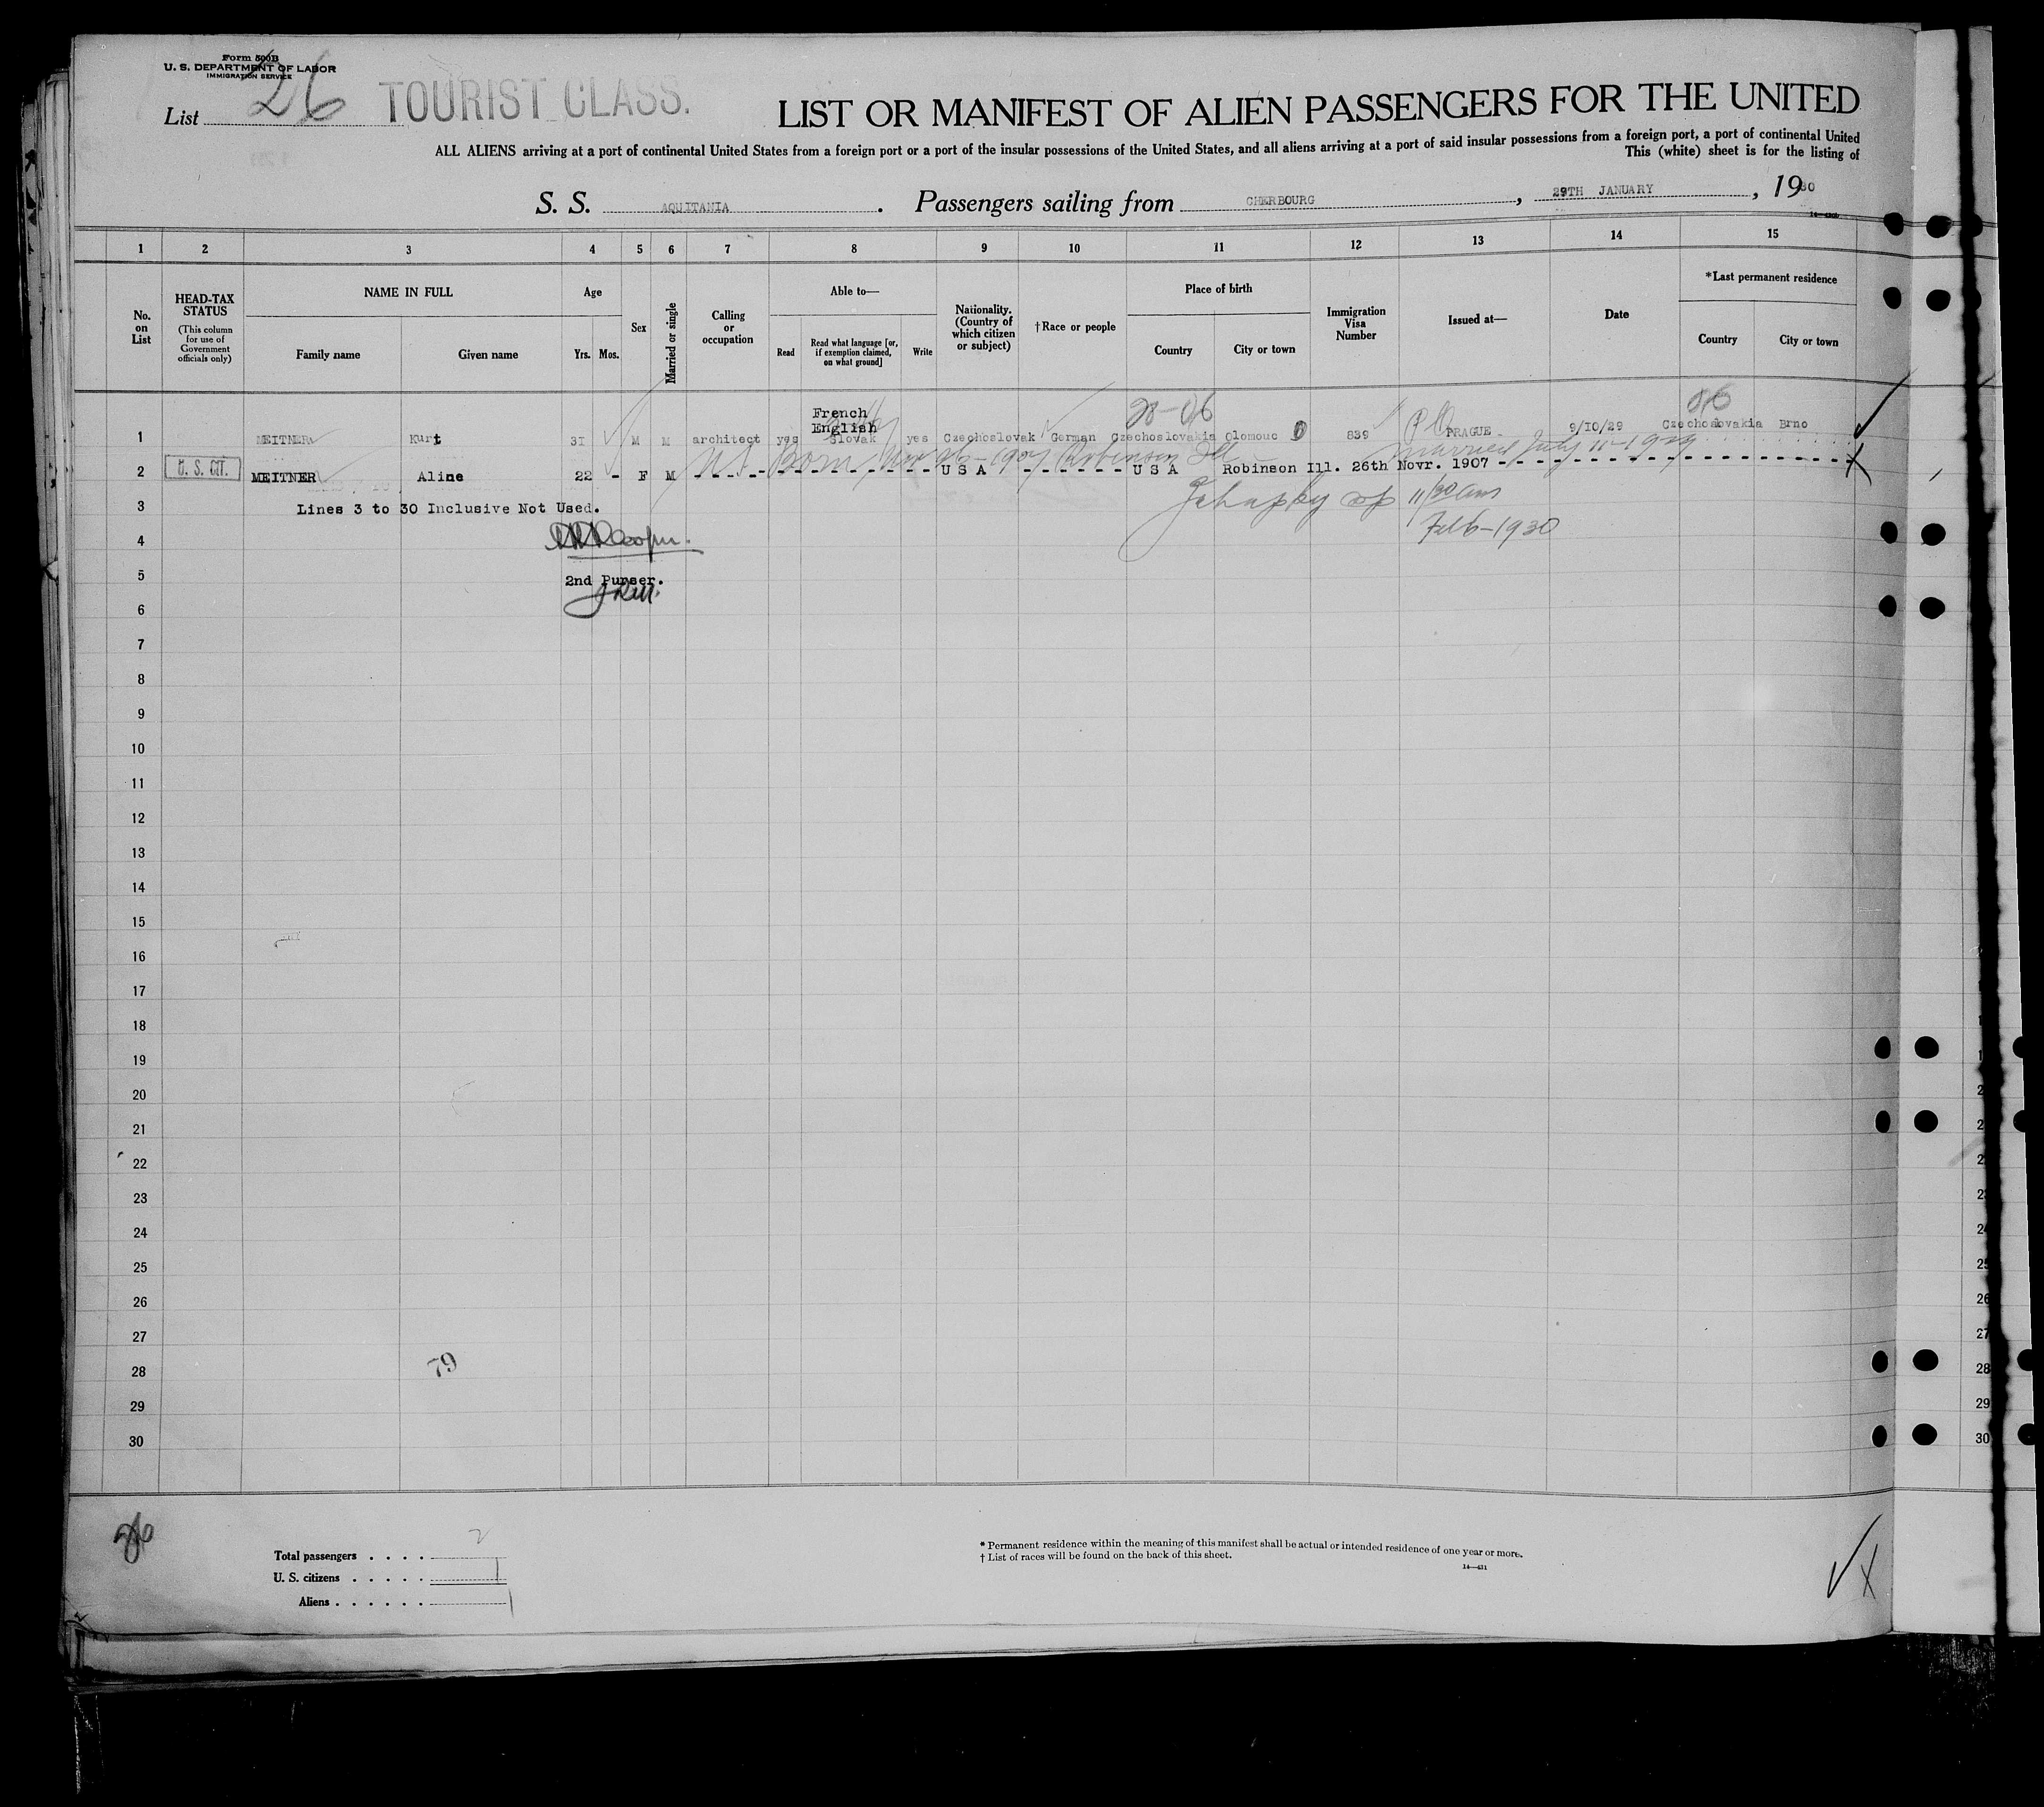 Form 500B
U. S. DEPARTMENT OF LABOR
IMMIGRATION SERVICE
List 26 TOURIST CLASS.
LIST OR MANIFEST OF ALIEN PASSENGERS FOR THE UNITED
ALL ALIENS arriving at a port of continental United States from a foreign port or a port of the insular possessions of the United States, and all aliens arriving at a port of said insular possessions from a foreign port, a port of continental United
This (white) sheet is for the listing of
S. S. AQUITANIA. Passengers sailing from CHERBOURG, 29TH JANUARY, 1930
1 2 3 4 5 6 7 8 9 10 11 12 13 14 15
No. on List
HEAD-TAX STATUS
(This column for use of Government officials only)
NAME IN FULL
Family name Given name
Age
Yrs. Mos.
Sex
Married or single
Calling or occupation
Able to—
Read
Read what language [or, if exemption claimed, on what ground]
Write
Nationality. (Country of which citizen or subject)
†Race or people
Place of birth
Country City or town
Immigration Visa Number
Issued at—
Date
*Last permanent residence
Country City or town
French
English
1 MEITNER Kurt 31 M M architect yes Slovak yes Czechoslovak German Czechoslovakia Olomouc 839 PRAGUE 9/10/29 Czechoslovakia Brno
Born Nov 26-1907 Robinson Ill Married July 11-1929
2 U. S. CIT. MEITNER Aline 22 - F M - - - - - - - - - - - U S A - - - - - - U S A Robinson Ill. 26th Novr. 1907 - - - - - - - - - - - - - - - - -
3 Lines 3 to 30 Inclusive Not Used.
11/30 am
Feb 6-1930
4
5 2nd Purser.
6
7
8
9
10
11
12
13
14
15
16
17
18
19
20
21
22
23
24
25
26
27
28 79
29
30
Total passengers . . . . 2
U. S. citizens . . . . . 1
Aliens . . . . . . 1
* Permanent residence within the meaning of this manifest shall be actual or intended residence of one year or more.
† List of races will be found on the back of this sheet.